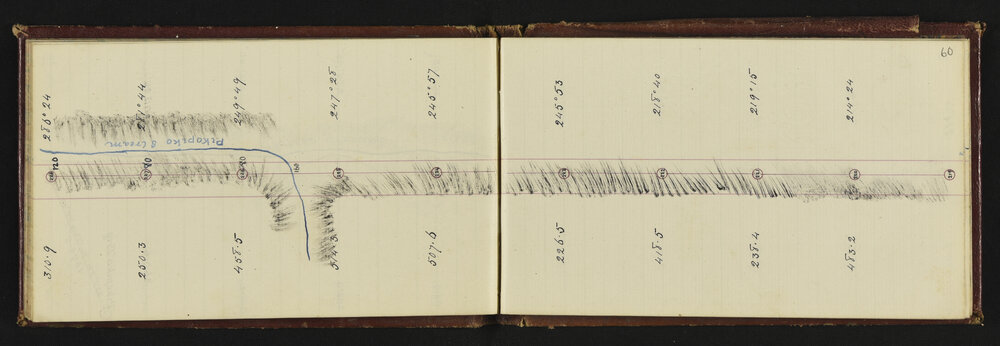 60
286°24
281°44
249°49
247°28
245°57
245°53
218°40
219°15
214°24
Pekapeka Stream
120
80
80
160
310·9
250·3
458·5
514·3
507·6
226·5
418·5
238·4
483·2